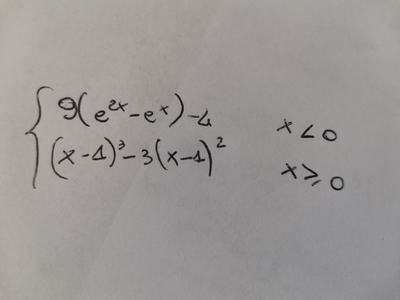 9(e²ˣ-eˣ)-4 x<0
(x-1)³-3(x-1)² x≥0